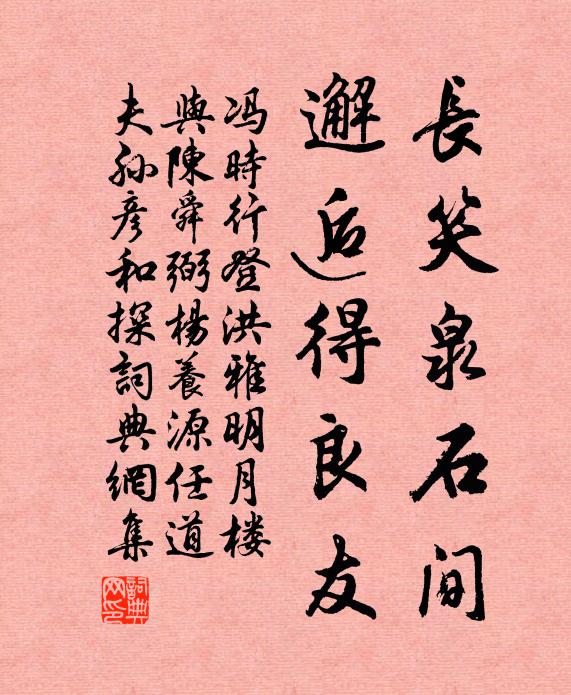 長笑泉石间
邂逅得良友
冯時行登洪雅明月楼
與陳舜弼楊養源任道
夫孙彦和探詞典網集
詞典網印